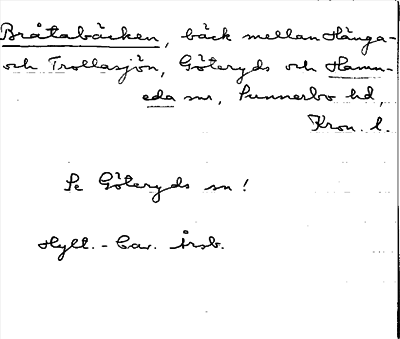 Bråtabäcken, bäck mellan Hänga-
och Trollasjön, Göteryds och Hamn-
eda snr, Sunnerbo hd,
Kron. l.
Se Göteryds sn!
Hylt.-Cav. Årsb.